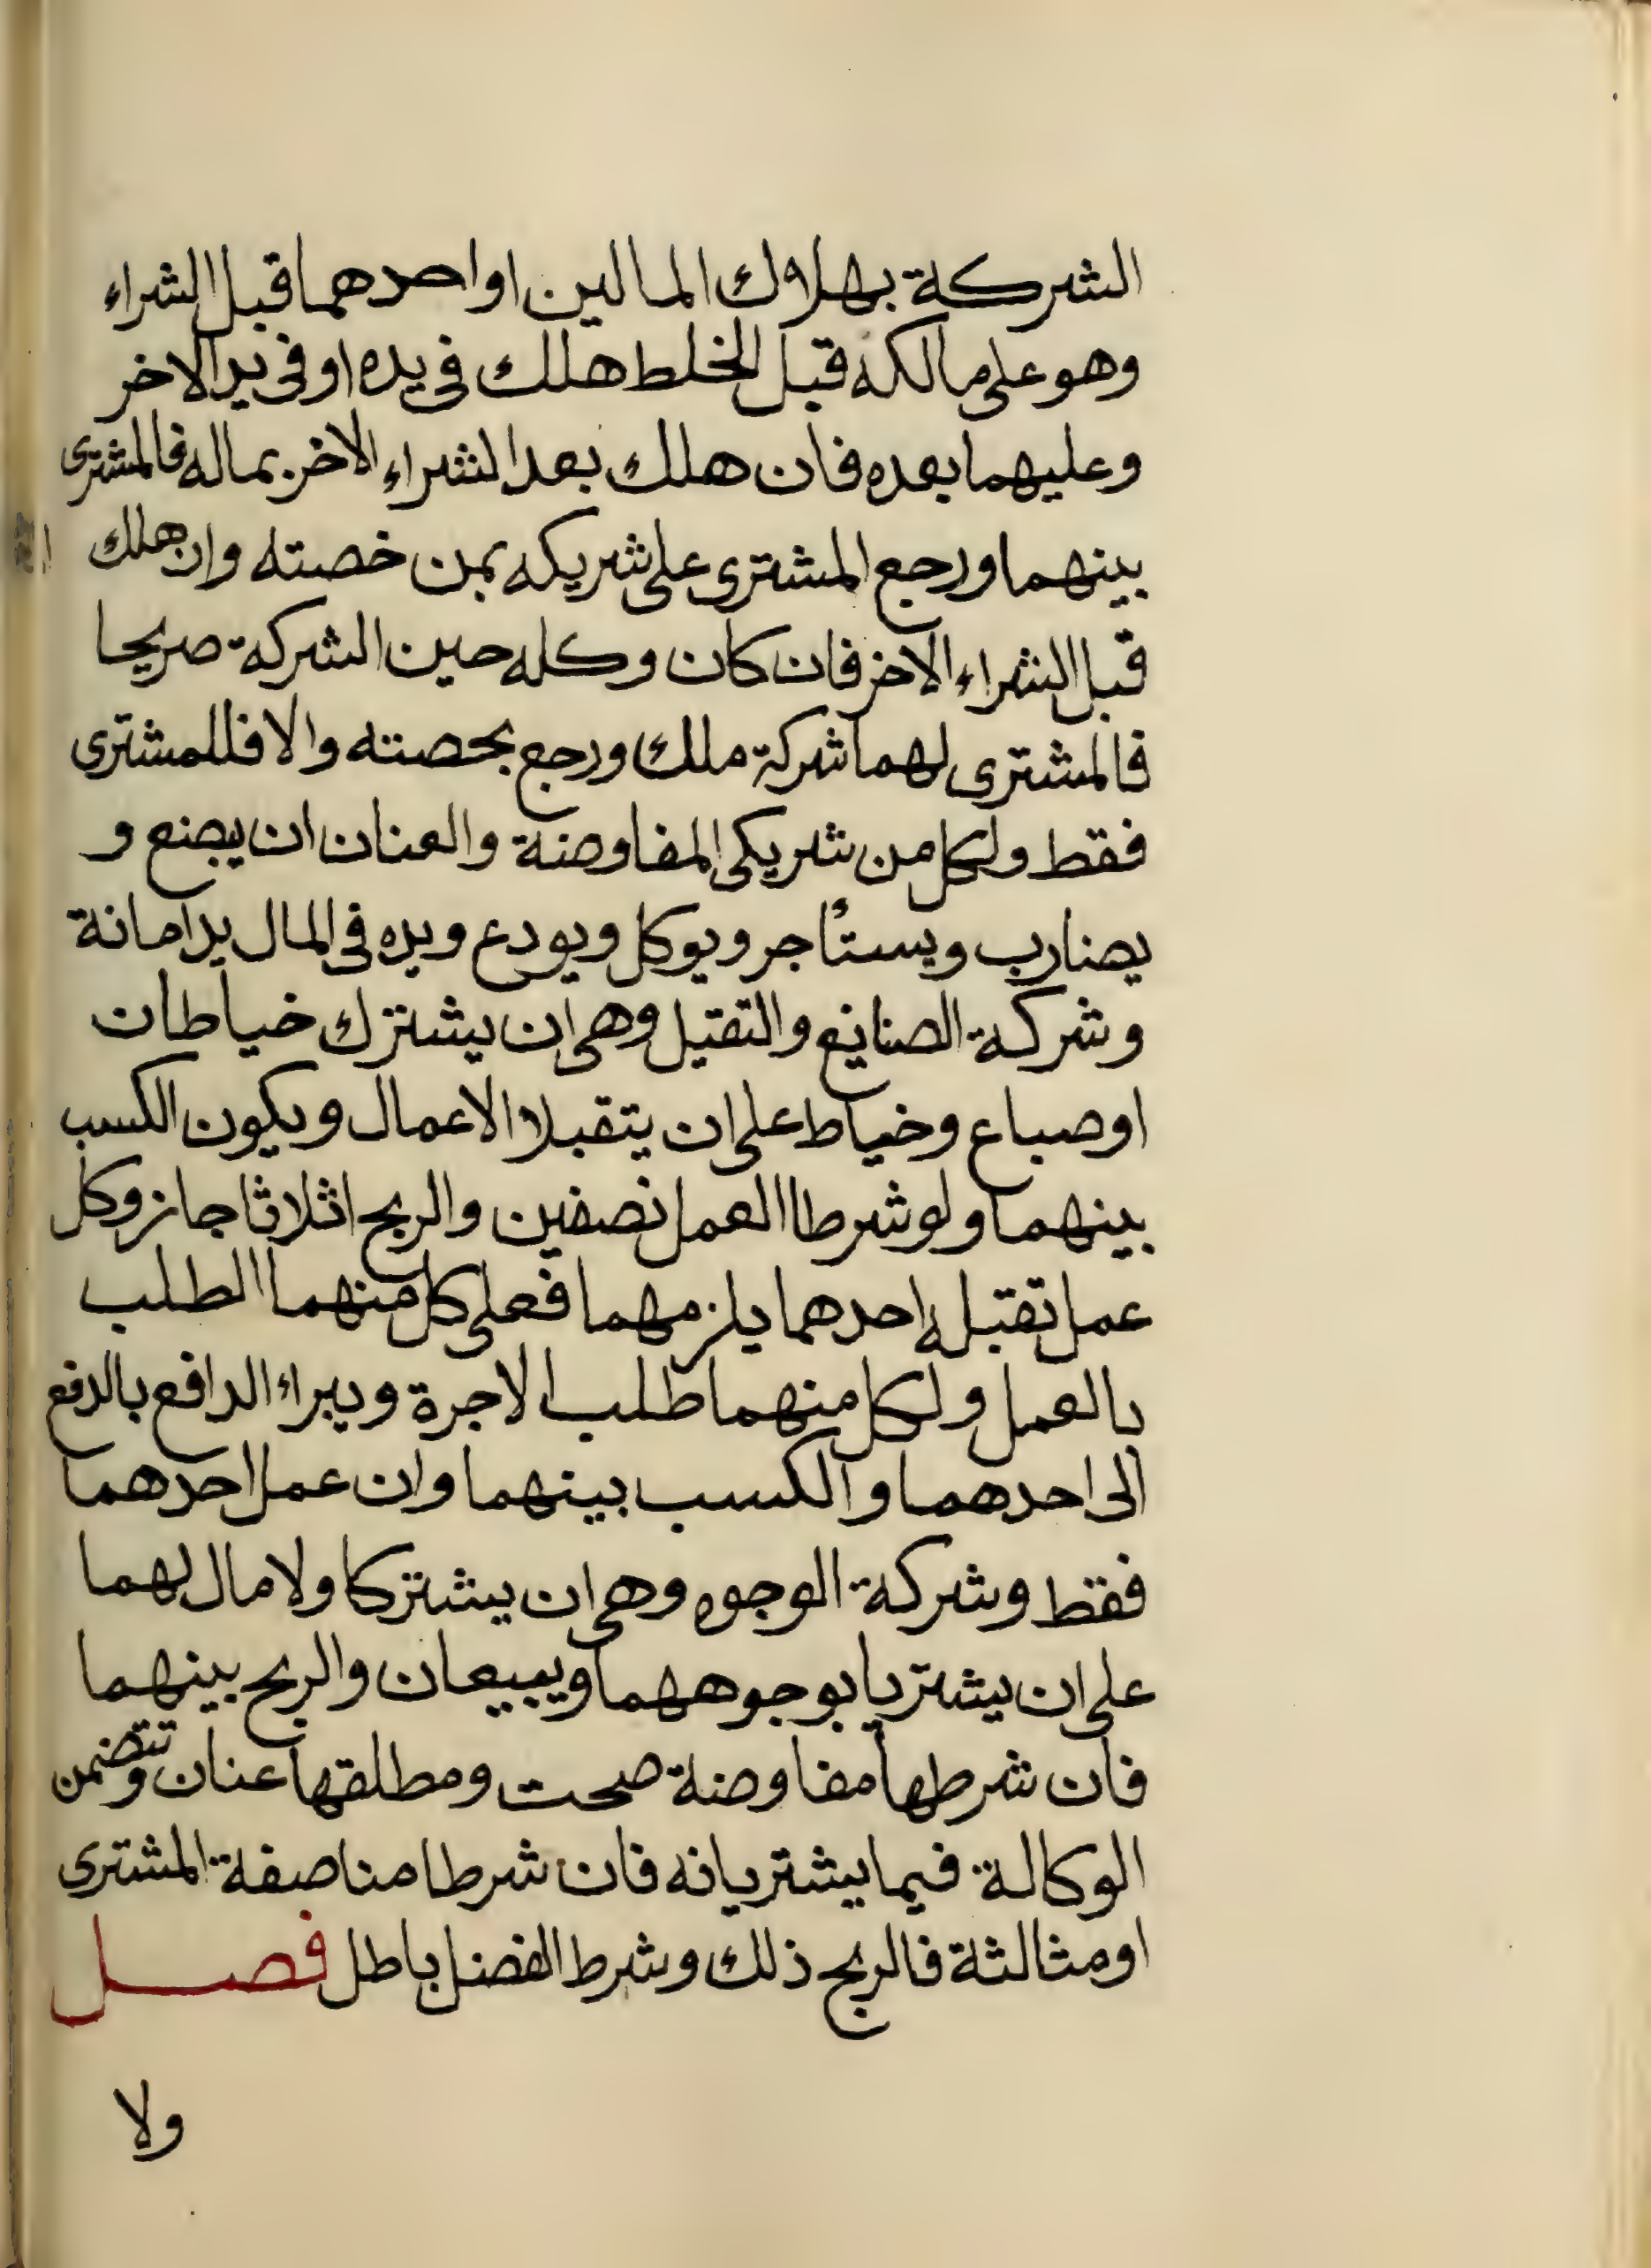 الشركة بهلاك المالين او احدهما قبل الشراء
وهو على مالكه قبل الخلط هلك فى يده او فى يد الاخر
وعليهما بعده فان هلك بعد الشراء الاخر بماله فالمشترى
بينهما ورجع المشترى على شريكه بمن خصته وان هلك
قبل الشراء الاخر فان كان وكله حين الشركة صريحا
فالمشترى لهما شركة ملك ورجع بحصته والا فللمشترى
فقط ولكل من شريكى المفاوضة والعنان ان يبضع و
يضارب ويستأجر ويوكل ويودع ويده فى المال يد امانة
وشركة الصنايع والتقبل وهى ان يشترك خياطان
او صباع وخياط على ان يتقبلا الاعمال ويكون الكسب
بينهما ولو شرطا العمل نصفين والربح اثلاثا جاز وكل
عمل تقبله احدهما يلزمهما فعلى كل منهما الطلب
بالعمل ولكل منهما طلب الاجرة ويبراء الدافع بالدفع
الى احدهما والكسب بينهما وان عمل احدهما
فقط وشركة الوجوه وهى ان يشتركا ولا مال لهما
على ان يشتريا بوجوههما ويبيعان والربح بينهما
فان شرطها مفاوضة صحت ومطلقها عنان وتتضمن
الوكالة فيما يشتريانه فان شرطا مناصفة المشترى
او مثالثة فالربح ذلك وشرط الفضل باطل فصل
ولا